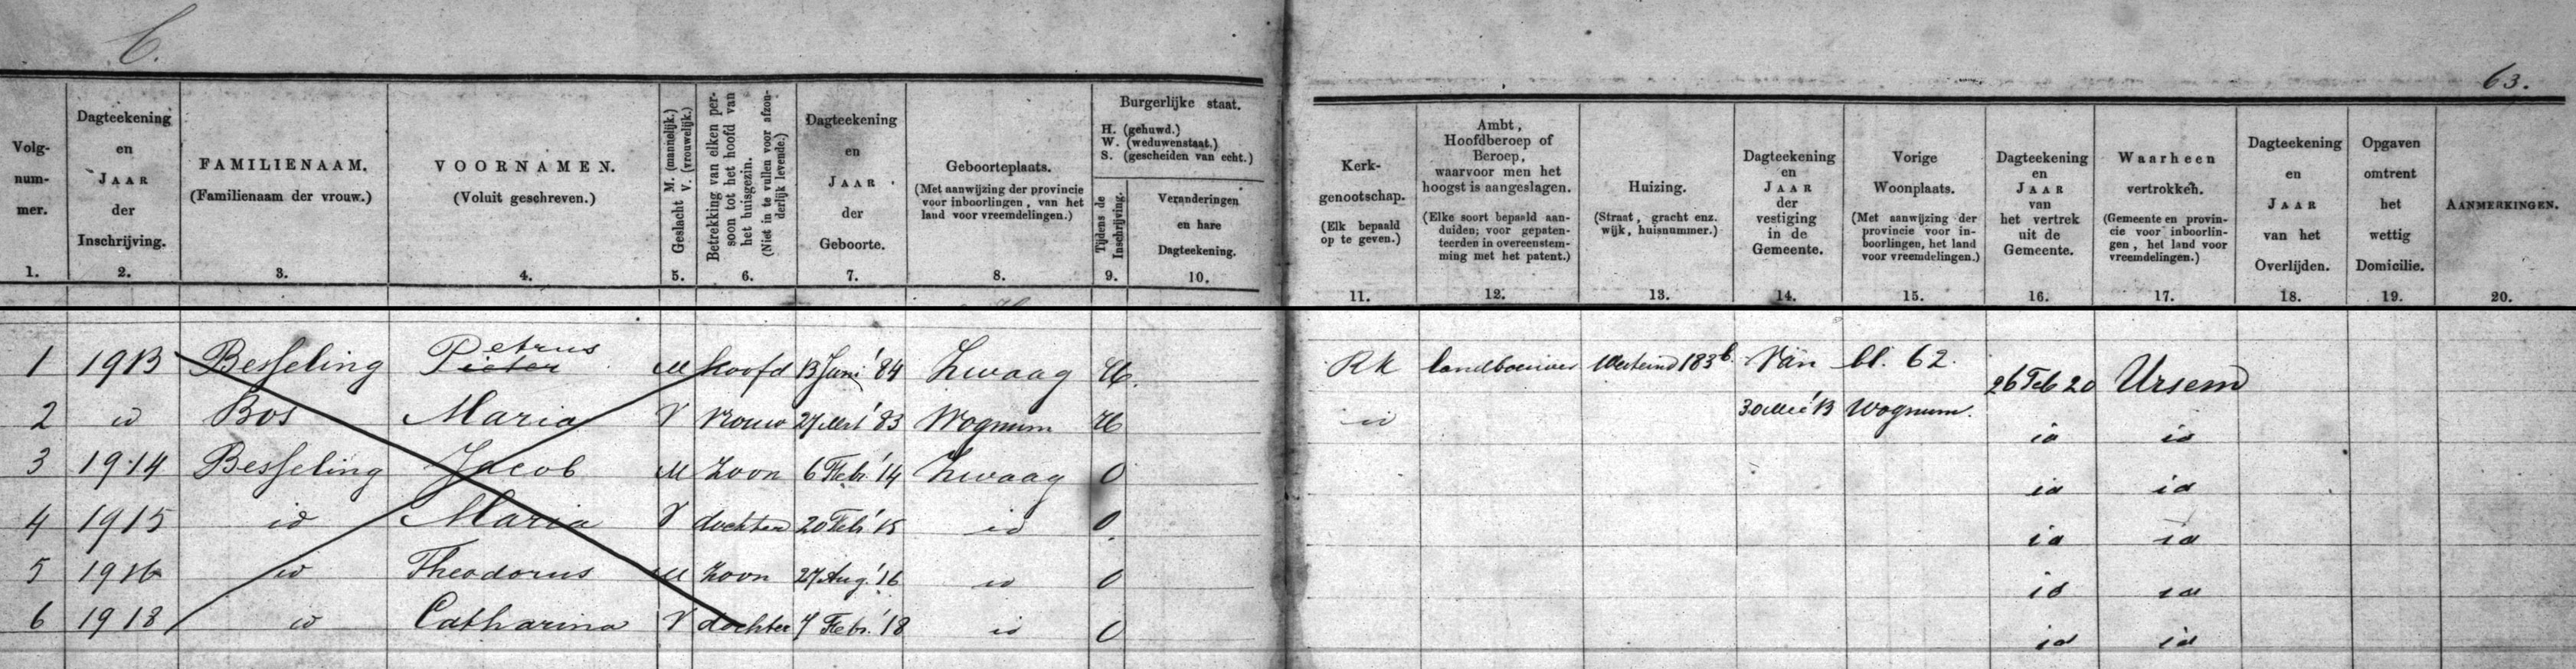 C.
63.
Volg-
num-
mer.
1.
Dagteekening
en
JAAR
der
Inschrijving.
2.
FAMILIENAAM.
(Familienaam der vrouw.)
3.
VOORNAMEN.
(Voluit geschreven.)
4.
Geslacht M. (mannelijk.)
V. (vrouwelijk.)
5.
Betrekking van elken per-
soon tot het hoofd van
het huisgezin.
(Niet in te vullen voor afzon-
derlijk levende.)
6.
Dagteekening
en
JAAR
der
Geboorte.
7.
Geboorteplaats.
(Met aanwijzing der provincie
voor inboorlingen, van het
land voor vreemdelingen.)
8.
Burgerlijke staat.
H. (gehuwd.)
W. (weduwenstaat.)
S. (gescheiden van echt.)
Tijdens de
Inschrijving.
9.
Veranderingen
en hare
Dagteekening.
10.
Kerk-
genootschap.
(Elk bepaald
op te geven.)
11.
Ambt,
Hoofdberoep of
Beroep,
waarvoor men het
hoogst is aangeslagen.
(Elke soort bepaald aan-
duiden; voor gepaten-
teerden in overeenstem-
ming met het patent.)
12.
Huizing.
(Straat, gracht enz.
wijk, huisnummer.)
13.
Dagteekening
en
JAAR
der
vestiging
in de
Gemeente.
14.
Vorige
Woonplaats.
(Met aanwijzing der
provincie voor in-
boorlingen, het land
voor vreemdelingen.)
15.
Dagteekening
en
JAAR
van
het vertrek
uit de
Gemeente.
16.
Waarheen
vertrokken.
(Gemeente en provin-
cie voor inboorlin-
gen, het land voor
vreemdelingen.)
17.
Dagteekening
en
JAAR
van het
Overlijden.
18.
Opgaven
omtrent
het
wettig
Domicilie.
19.
AANMERKINGEN.
20.
1 1913 Besseling Pieter etrus M hoofd 13 Juni '84 Zwaag H. RK landbouwer Westeind 183b Van bl. 62. 26 Feb 20 Ursem
2 id Bos Maria V Vrouw 27 Mrt '83 Wognum H id 30 Mei '13 Wognum. id id
3 1914 Besseling Jacob M Zoon 6 Febr. '14 Zwaag O id id
4 1915 id Maria V dochter 20 Feb. '15 id O. id id
5 1916 id Theodorus M Zoon 27 Aug. '16 id O id id
6 1918 id Catharina V dochter 7 Febr. '18 id O id id